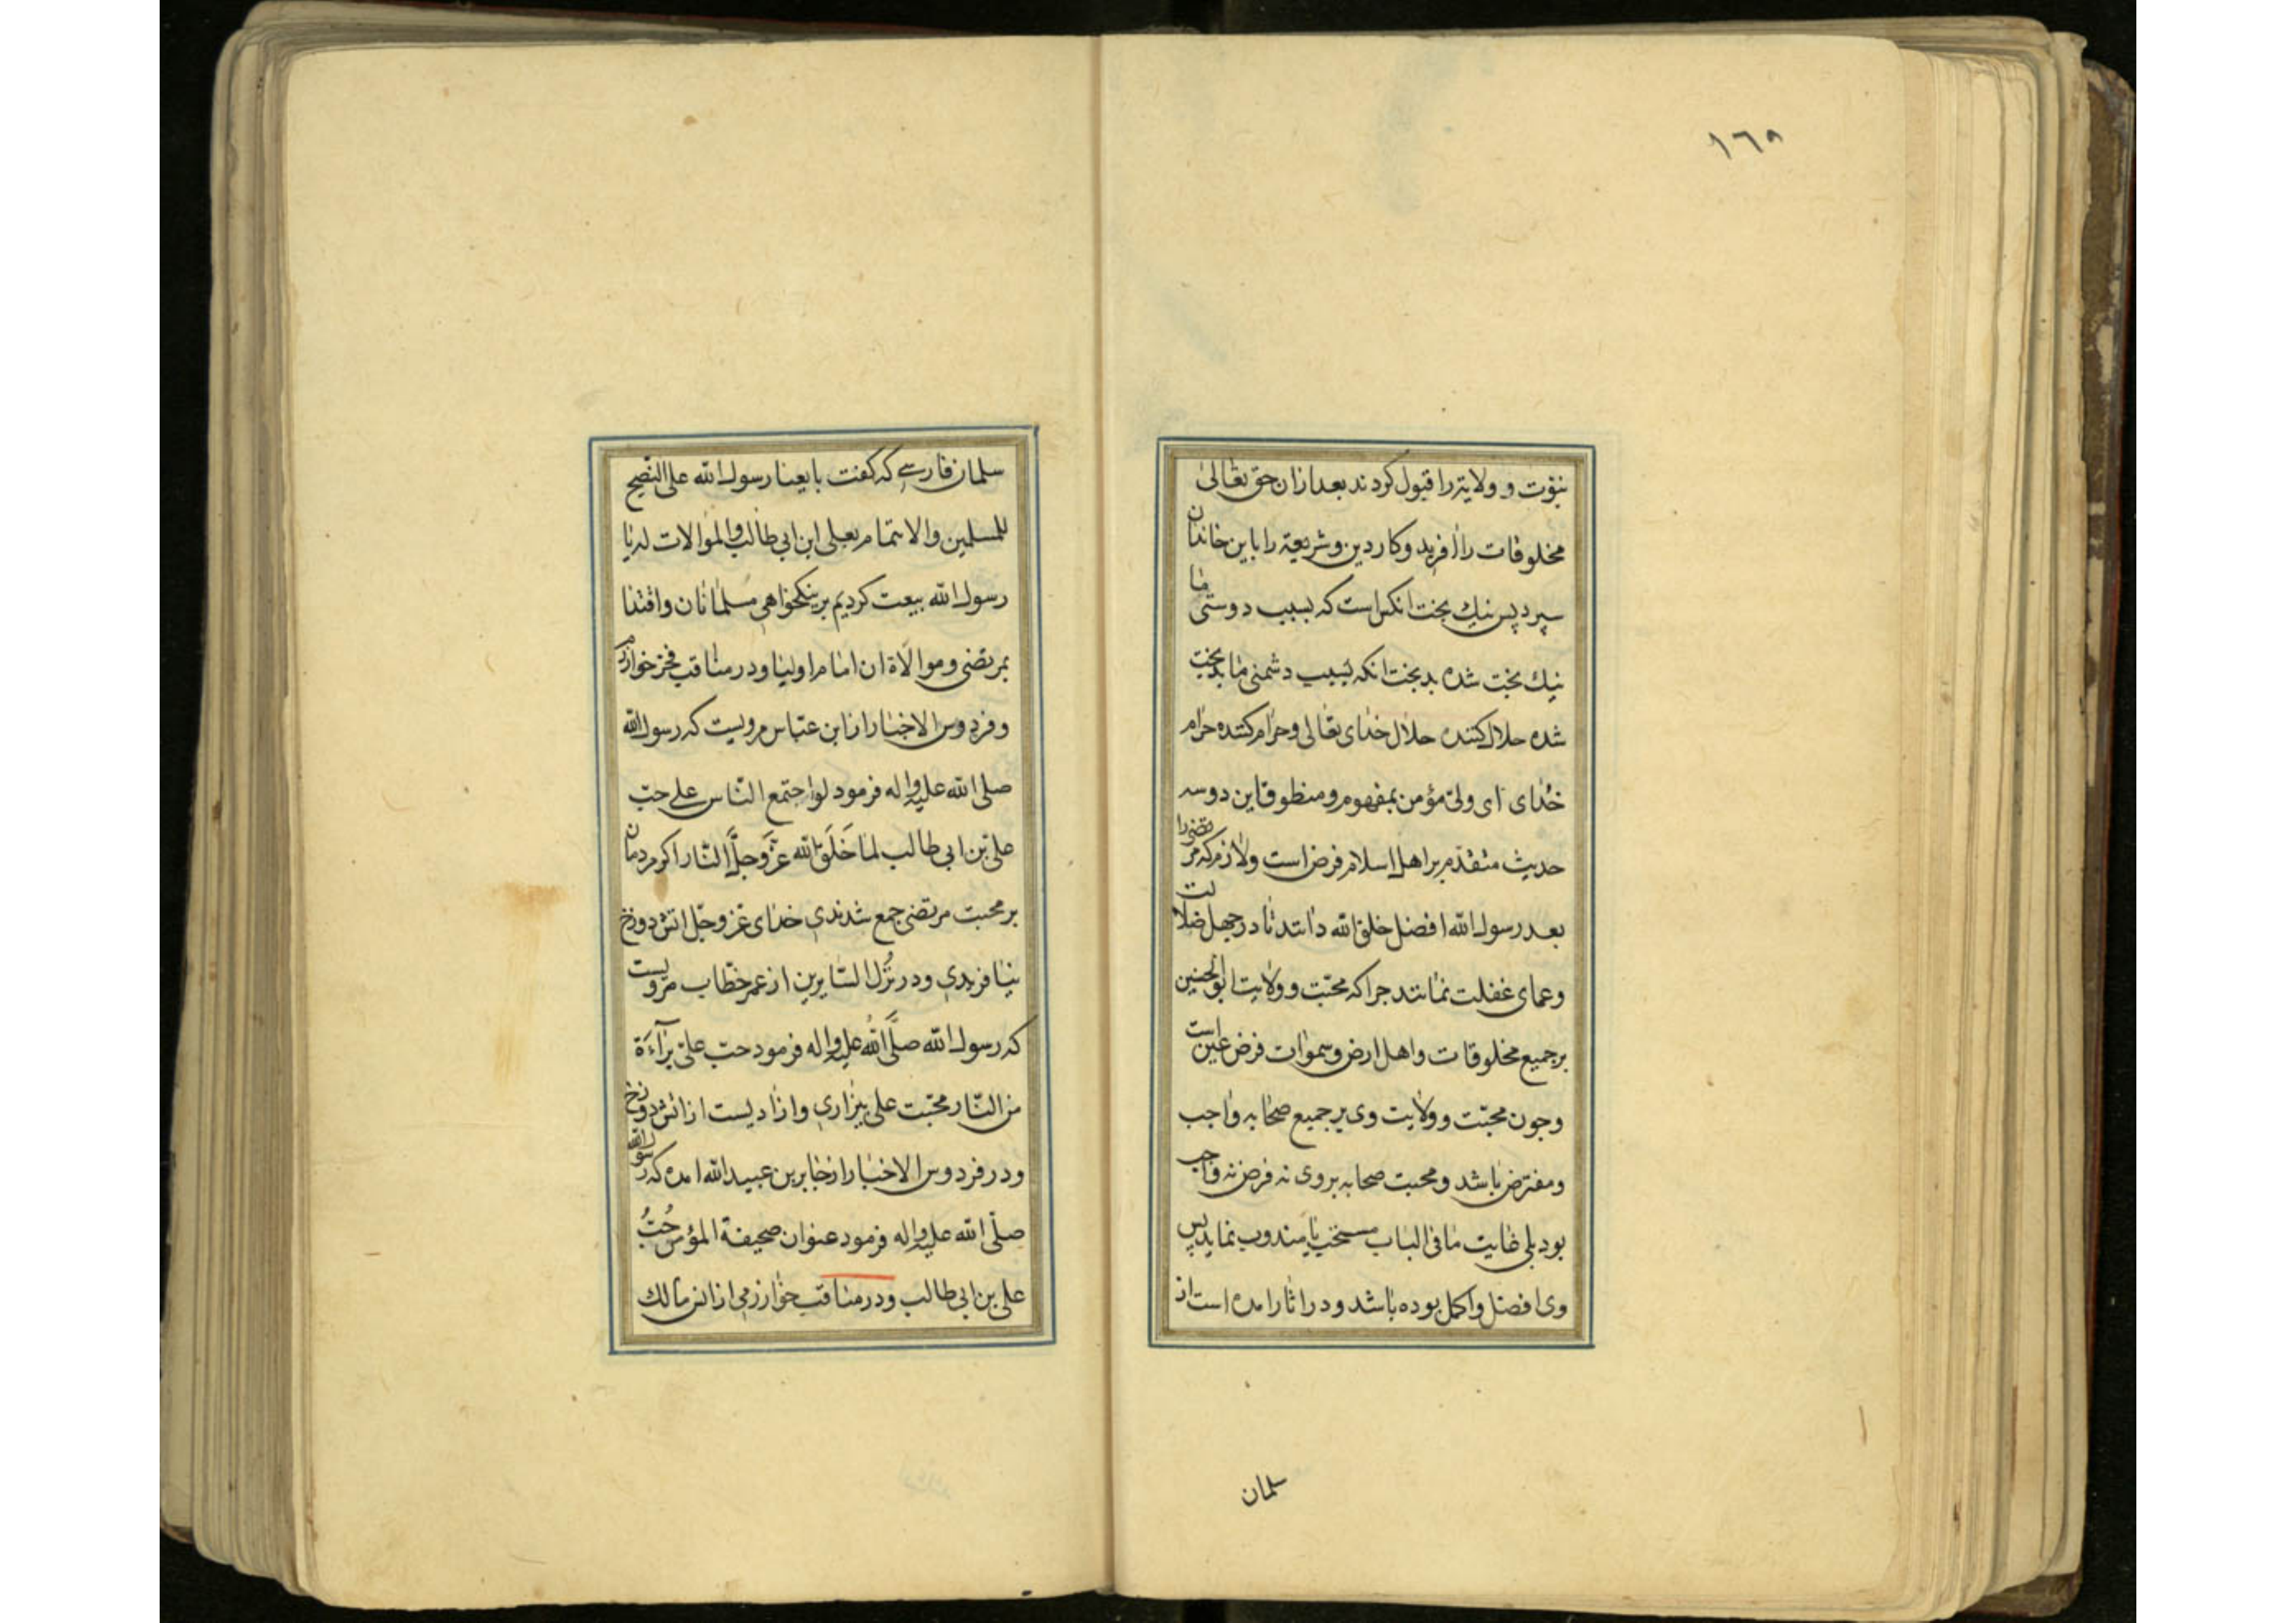 ١٦٥
نبوّت و ولایة را قبول کردند بعد ازان حق تعالی
مخلوقات را افرید و کار دین و شریعة را باین خاندان
سپرد پس نیك بخت انکس است که بسبب دوستی ما
نیك بخت شده بدبخت انکه بسبب دشمنی ما بدبخت
شده حلال کننده حلال خدای تعالی و حرام کننده حرام
خدای ای ولیّ مؤمن بمفهوم و منظوق این دو سه
حدیث متقدّم بر اهل اسلام فرض است و لازم که مرتضی را
بعد رسول الله افضل خلق الله دانند تا در جهل ضلالت
و عمای غفلت نمانند جرا که محبّت و ولایت ابو الحسنین
بر جمیع مخلوقات و اهل ارض و سموات فرض عین است
وجون محبّت و ولایت وی بر جمیع صحابه واجب
و مفترض باشد و محبت صحابه بر وی نه فرض نه واجب
بود بلی غایت ما فی الباب مستحب یا مندوب نماید پس
وی افضل و اکمل بوده باشد و در اثار امده است از
سلمان
سلمان فارسے که کفت بایعنا رسول الله علی النصح
للمسلمین والایتمام بعلی ابن ابی طالب والموالات له با
رسول الله بیعت کردیم بر نیکخواهی مسلمانان و اقتدا
بمرتضی و موالاة ان امام اولیا و در مناقب فخر خوارزم
و فردوس الاخبار از ابن عبّاس مرویست که رسول الله
صلی الله علیه واله فرمود لو اجتمع النّاس علے حبّ
علیّ بن ابی طالب لما خَلَقَ الله عزّ وَجلَّ النّار اکر مردمان
بر محبت مرتضی جمع شدندی خدای عز و جلّ اتش دوزخ
نیافریدی و در نُزُل السّایرین از عمر خطّاب مرویست
که رسول الله صلَّی اللهُ علیه واله فرمود حبّ علیّ برآءَة
من النّار محبّت علی بیزاری و ازادیست از اتش دوزخ
و در فردوس الاخبار از جابر بن عبید الله امده که رسول الله
صلّی الله علیه واله فرمود عنوان صحیفة المؤمن حُبُّ
علی بن ابی طالب و در مناقب خوارزمی از انس مالك